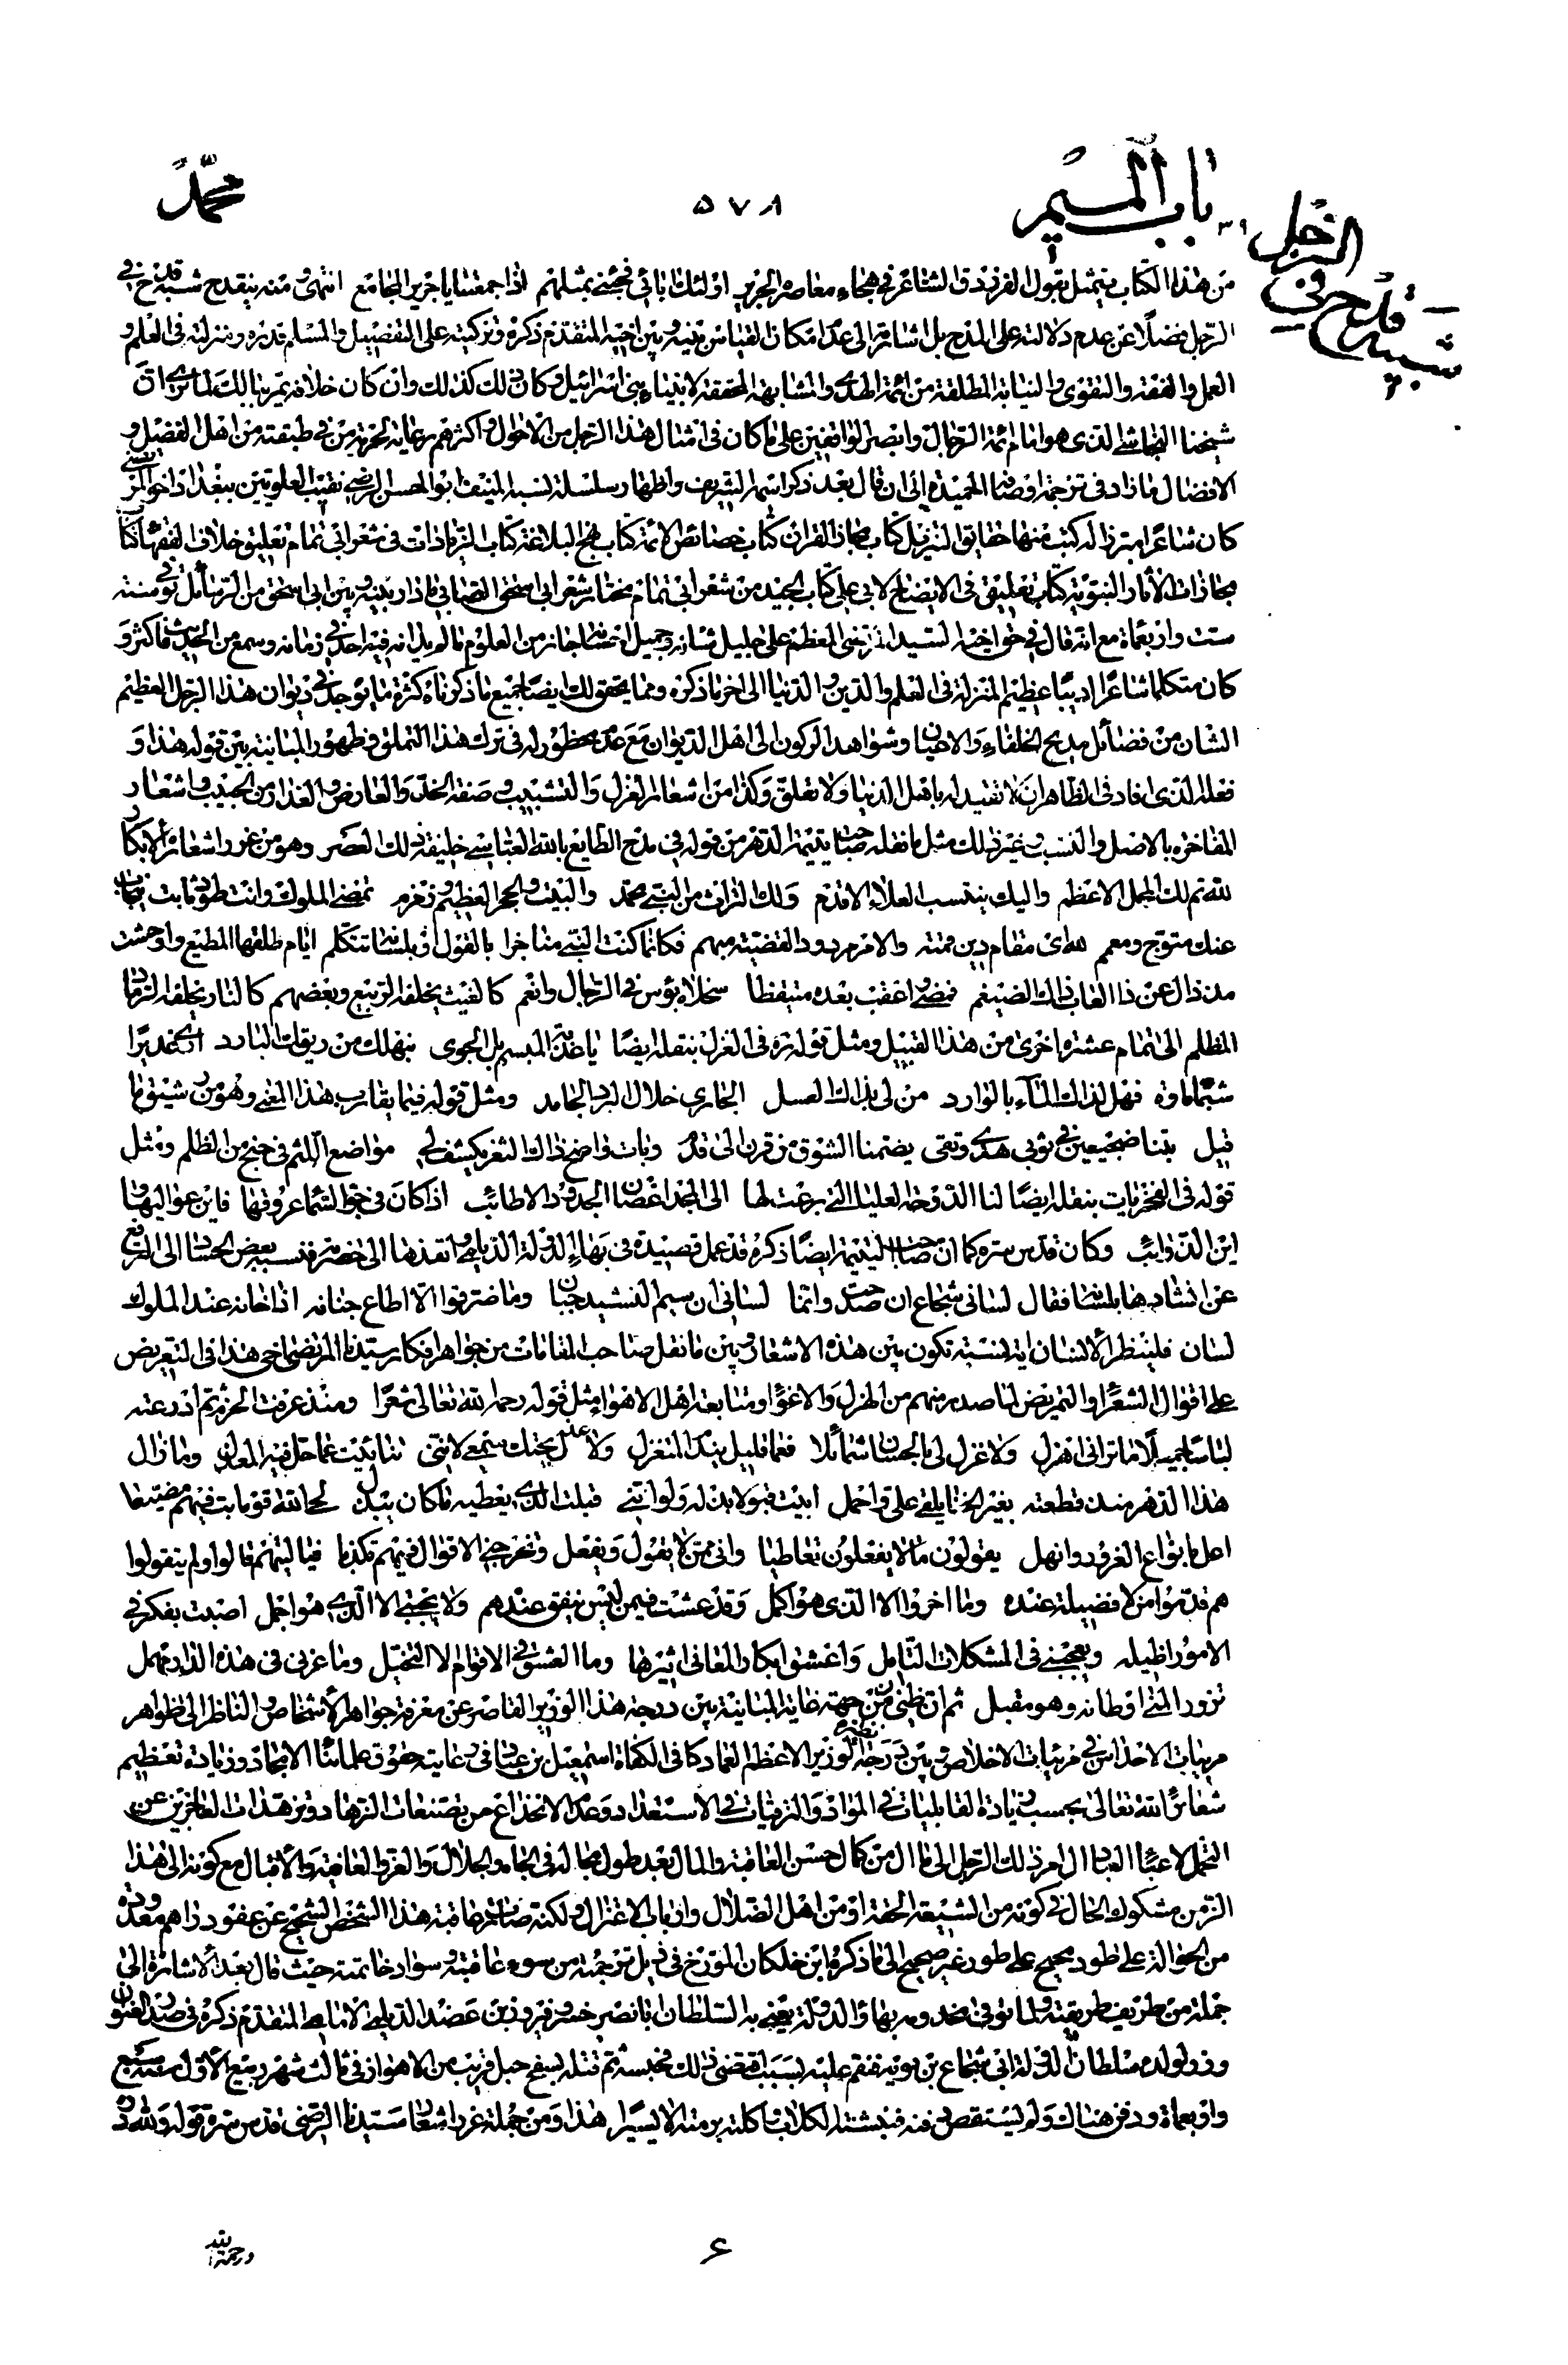 باب الميم
۵۷۸
محمّد
۳۹
شبيه قدح في الرّجل
من هذا الكتاب بتمثل بقول الفرزدق الشاعر في هجاء معاصره الجرير اولئك ابائي فجئني بمثلهم اذا جمعتنا يا جرير المجامع انتهى ومنه ينقدح شبه قدح في
الرّجل فضلًا عن عدم دلالته على المدح بل اشارة الى عدم امكان القياس بينه وبين اخيه المتقدم ذكره وتزكيته على التفضيل والمسلم قدره ومنزلته في العلم و
العمل والفقه والتقوى والنيابة المطلقة من ائمة الهدى والمشابهة المحققة لانبياء بني اسرائيل وكان ذلك كذلك وان كان خلافه يمر ببالك لما ترى انّ
شيخنا النجاشي الذى هو امام ائمة الرّجال وابصر الواقفين على ما كان في امثال هذا الرّجل من الاحوال واكثرهم رعاية لحرمة من في طبقته من اهل الفضل و
الافضال ما زاد في ترجمة وصافه الحميدة الى ان قال بعد ذكر اسمه الشريف واظهار سلسلة نسبه المنيف ابو الحسن الرضي نقيب العلويين ببغداد اخو المرتضى
كان شاعرًا مبرزا له كتب منها حقايق التنزيل كتاب مجاز القران كتاب خصائص الائمة كتاب نهج البلاغة كتاب الزيادات في شعر ابي تمام تعليق خلاف الفقهاء كتاب
مجازات الاثار النبويّة كتاب تعليقة في الايضاح لابي علي كتاب الجيد من شعر ابي تمام مختار شعر ابي اسحق الصابي ما دار بينه وبين ابي اسحق من الرسائل توفي سنة
ست واربعمائة مع انه قال في حق اخيه السيد المرتضى المعظم على جليل شانه وجميل احسانه حاز من العلوم ما لم يدانه فيه احد في زمانه وسمع من الحديث فاكثر و
كان متكلما شاعرًا اديبًا عظيم المنزلة في العلم والدين والدنيا الى اخر ما ذكره ومما يحقق لك ايضًا جميع ما ذكرناه كثرة ما يوجد في ديوان هذا الرجل العظيم
الشان من فضائل مديح الخلفاء والاعيان وشواهد الركون الى اهل الديوان مع عدم محظور له في ترك هذا التملق وظهور المباينة بين قوله هذا و
فعله الذى افاد في الظاهر ان لا تقيد له باهل الدنيا ولا تعلق وكذا من اشعار الغزل والتشبيب وصفة الخدّ والعارض والعذار من الحبيب واشعار
المفاخرة بالاصل والنسب وغير ذلك مثل ما نقله صاحب يتيمة الدهر من قوله في مدح الطايع بالله العباسي خليفة ذلك العصر وهو من غرر اشعاره الابكار
لله ثم لك المحل الاعظم واليك ينتسب العلاء الاقدم ولك التراث من النبي محمّد والبيت والحجر العظيم وزمزم تمضى الملوك وانت طود ثابت ينجاب
عنك متوج ومعمم لله اى مقام دين قمته والامر مردود القضيّة مبهم فكانما كنت النبي مناجزا بالقول او بلسانه تتكلم ايام طلقها المطيع واوحشت
مذ زال عن ذا الغاب ذاك الضيغم فمضى واعقب بعده متيقظا سجلاه بؤس في الرّجال وانعم كالغيث يخلفه الربيع وبعضهم كالنار يخلفها الرماد
المظلم الى تمام عشرة اخرى من هذا القبيل ومثل قوله ره في الغزل بنقله ايضًا يا عذبة المبسم بلّ الجوى بنهلك من ريقك البارد ارى غديرًا
شبمًا ماؤه فهل لذاك الماء بالوارد من لي بذاك العسل الجاري خلال البرد الجامد ومثل قوله فيما يقارب هذا المعنى وهو من شينق ما
قيل بتنا ضجيعين في ثوبي هدى وتقى يضمنا الشوق من قرن الى قدم وبات واضح ذاك الثغر يكشف لي مواضع اللثم في جنح من الظلم ومثل
قوله في الفخريات بنقله ايضًا لنا الدّوحة العليا التي برعت لها الى المجد اغصان الجدود الاطائب اذا كان في جو السّماء عروقها فاين عواليها و
اين الذوائب وكان قدس سره كما ان صاحب اليتيمة ايضًا ذكره قد عمل قصيدة في بهاء الدولة الديلمي وانفذها الى حضرته فنسبه بعض الحساد الى الترفع
عن انشادها بلسانه فقال لساني شجاع ان صحت وانما لساني ان سيم النشيد جبان وما ضر قوالا اطاع جنانه اذا خانه عند الملوك
لسان فلينظر الانسان اية نسبة تكون بين هذه الاشعار وبين ما نقل صاحب المقامات من جواهر افكار سيّدنا المرتضى اخي هذا في التعريض
على اقوال الشعراء والتمريض لما صدر منهم من الهزل والاغواء ومتابعة اهل الاهواء مثل قوله رحمه الله تعالى شعرًا ومنذ عرفت الحزم ثم ادرعته
لباسا جميلًا ما تراني اهزل ولا غزل لي بالحسان شمائلا فما قليل بيننا المتغزل
هذا الدهر منذ قطعته بغير الخنا يلقى على واحمل ابيت قبولا بذله ولو انّني قبلت الذى يعطيه ما كان يبذل لحى الله قوما بت فيهم مضيّعا
اعل بانواع الغرور وانهل يقولون ما لا يفعلون تعاطيا وانى ممّن لا يقول ويفعل وتحرجني الاقوال فيهم تكذبا فيا ليتهم قالوا ولم يتقولوا
هم قدّموا من لا فضيلة عنده وما اخروا الا الذى هو اكمل وقد عشت فيمن ليس ينفق عندهم ولا يعجبني الا الذي هو اجمل اصبت بفكر في
الامور اظيله ويعجبني في المشكلات التأمل واعشق ابكار المعاني اثيرها وما العشق في الاقوام الا التخيّل وما غربى في هذه الدار مهمل
تزور المنى اوطانه وهو مقبل ثم ان ظنى ان من جهة غاية المباينة بين درجة هذا الوزير القاصر عن معرفة جواهر الاشخاص والناظر الى ظواهر
مريبات الاخداس في مرئيات الاخلاص وبين درجة نظيره الوزير الاعظم العماد كافي الكفاة اسمعيل بن عباد في رعاية حقوق علمائنا الامجاد وزيادة تعظيم
شعائر الله تعالى بحسب زيادة القابليات في المواد والترقيات في الاستعداد وعدم الانخداع من تصنعات الزهاد وتزهّدات العاجزين عن
التحمل لاعباء العباد ال امر ذلك الرجل الى ما ال من كمال حسن العاقبة والمال بعد طول مجاله في الجاه والجلال والعز والعافية والاقبال مع كونه الى هذا
الزمن مشكوك الحال في كونه من الشيعة الحقة او من اهل الضلال وارباب الاعتزال ولكنه صار امر عاقبة هذا الشخص الشحيح عن عقود دراهم معدودة
من الحوالة على طور صحيح على طور غير صحيح الى ما ذكره ابن خلكان المورّخ في ذيل ترجمته من سوء عاقبة وسواد خاتمته حيث قال بعد الاشارة الى
جملة من طريف طريقته ولما توفى مخدومه بهاء الدولة يعني به السلطان ابا نصر خسرو فيروز بن عضد الدولة الديلمي الامامي المتقدم ذكره في صدر العنوان
وزر لولده سلطان الدولة ابي شجاع بن بويه فنقم عليه بسبب اقتضى ذلك فحبسه ثم قتله بسفح جبل قريب من الاهواز في ثالث شهر ربيع الاول سنة سبع
واربعمائة ودفن هناك ولم يستقص دفنه فنبشته الكلاب واكلته برمته الا يسيرا هذا ومن جملة غرر اشعار سيّدنا الرّضي قدس سره قوله ولله درّه
۶
ورحمة الله